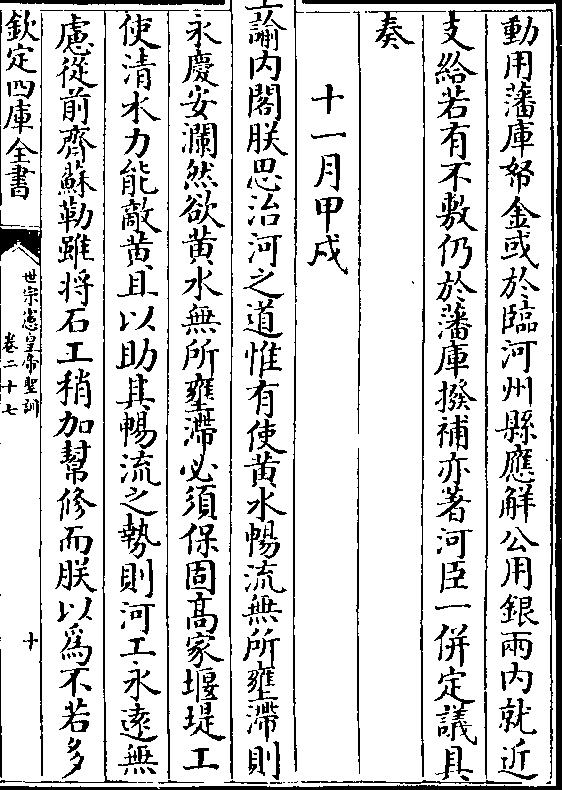 動用藩庫帑金或於臨河州縣應解公用銀兩內就近
支給若有不敷仍於藩庫撥補亦著河臣一併定議具
奏
十一月甲戌
上諭內閣朕思治河之道惟有使黄水暢流無所壅滯則
永慶安瀾然欲黄水無所壅滯必須保固高家堰堤工
使清水力能敵黄且以助其暢流之勢則河工永逺無
慮從前齊蘇勒雖將石工稍加幫修而朕以為不若多
欽定四庫全書
世宗憲皇帝聖訓
卷二十七
十